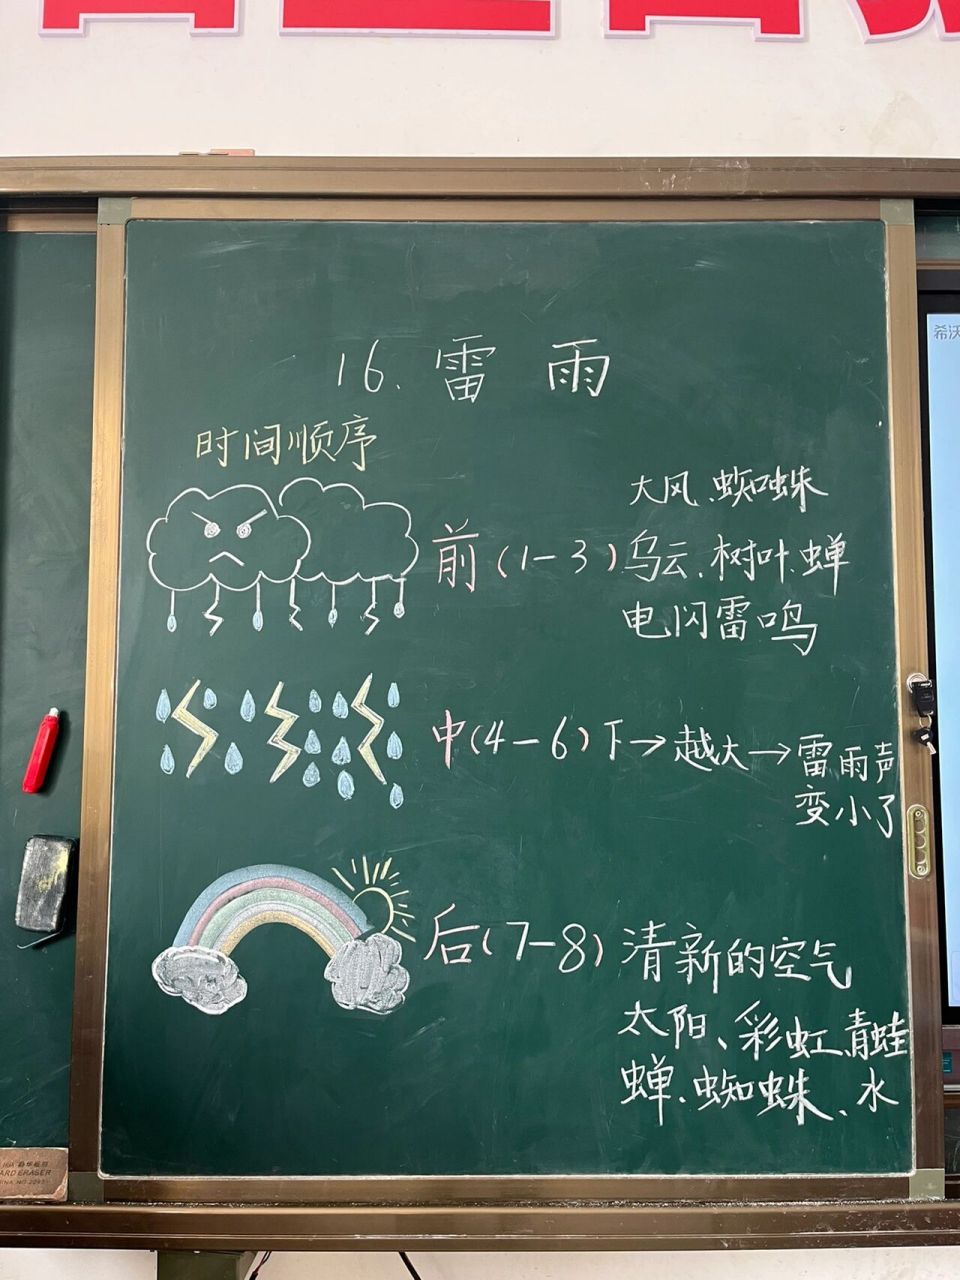 16. 雷 雨
时间顺序
前(1-3)
大风、蜘蛛
乌云、树叶、蝉
电闪雷鸣
中(4-6)下→越大→雷雨声
变小了
后(7-8)清新的空气
太阳、彩虹、青蛙
蝉、蜘蛛、水
希沃